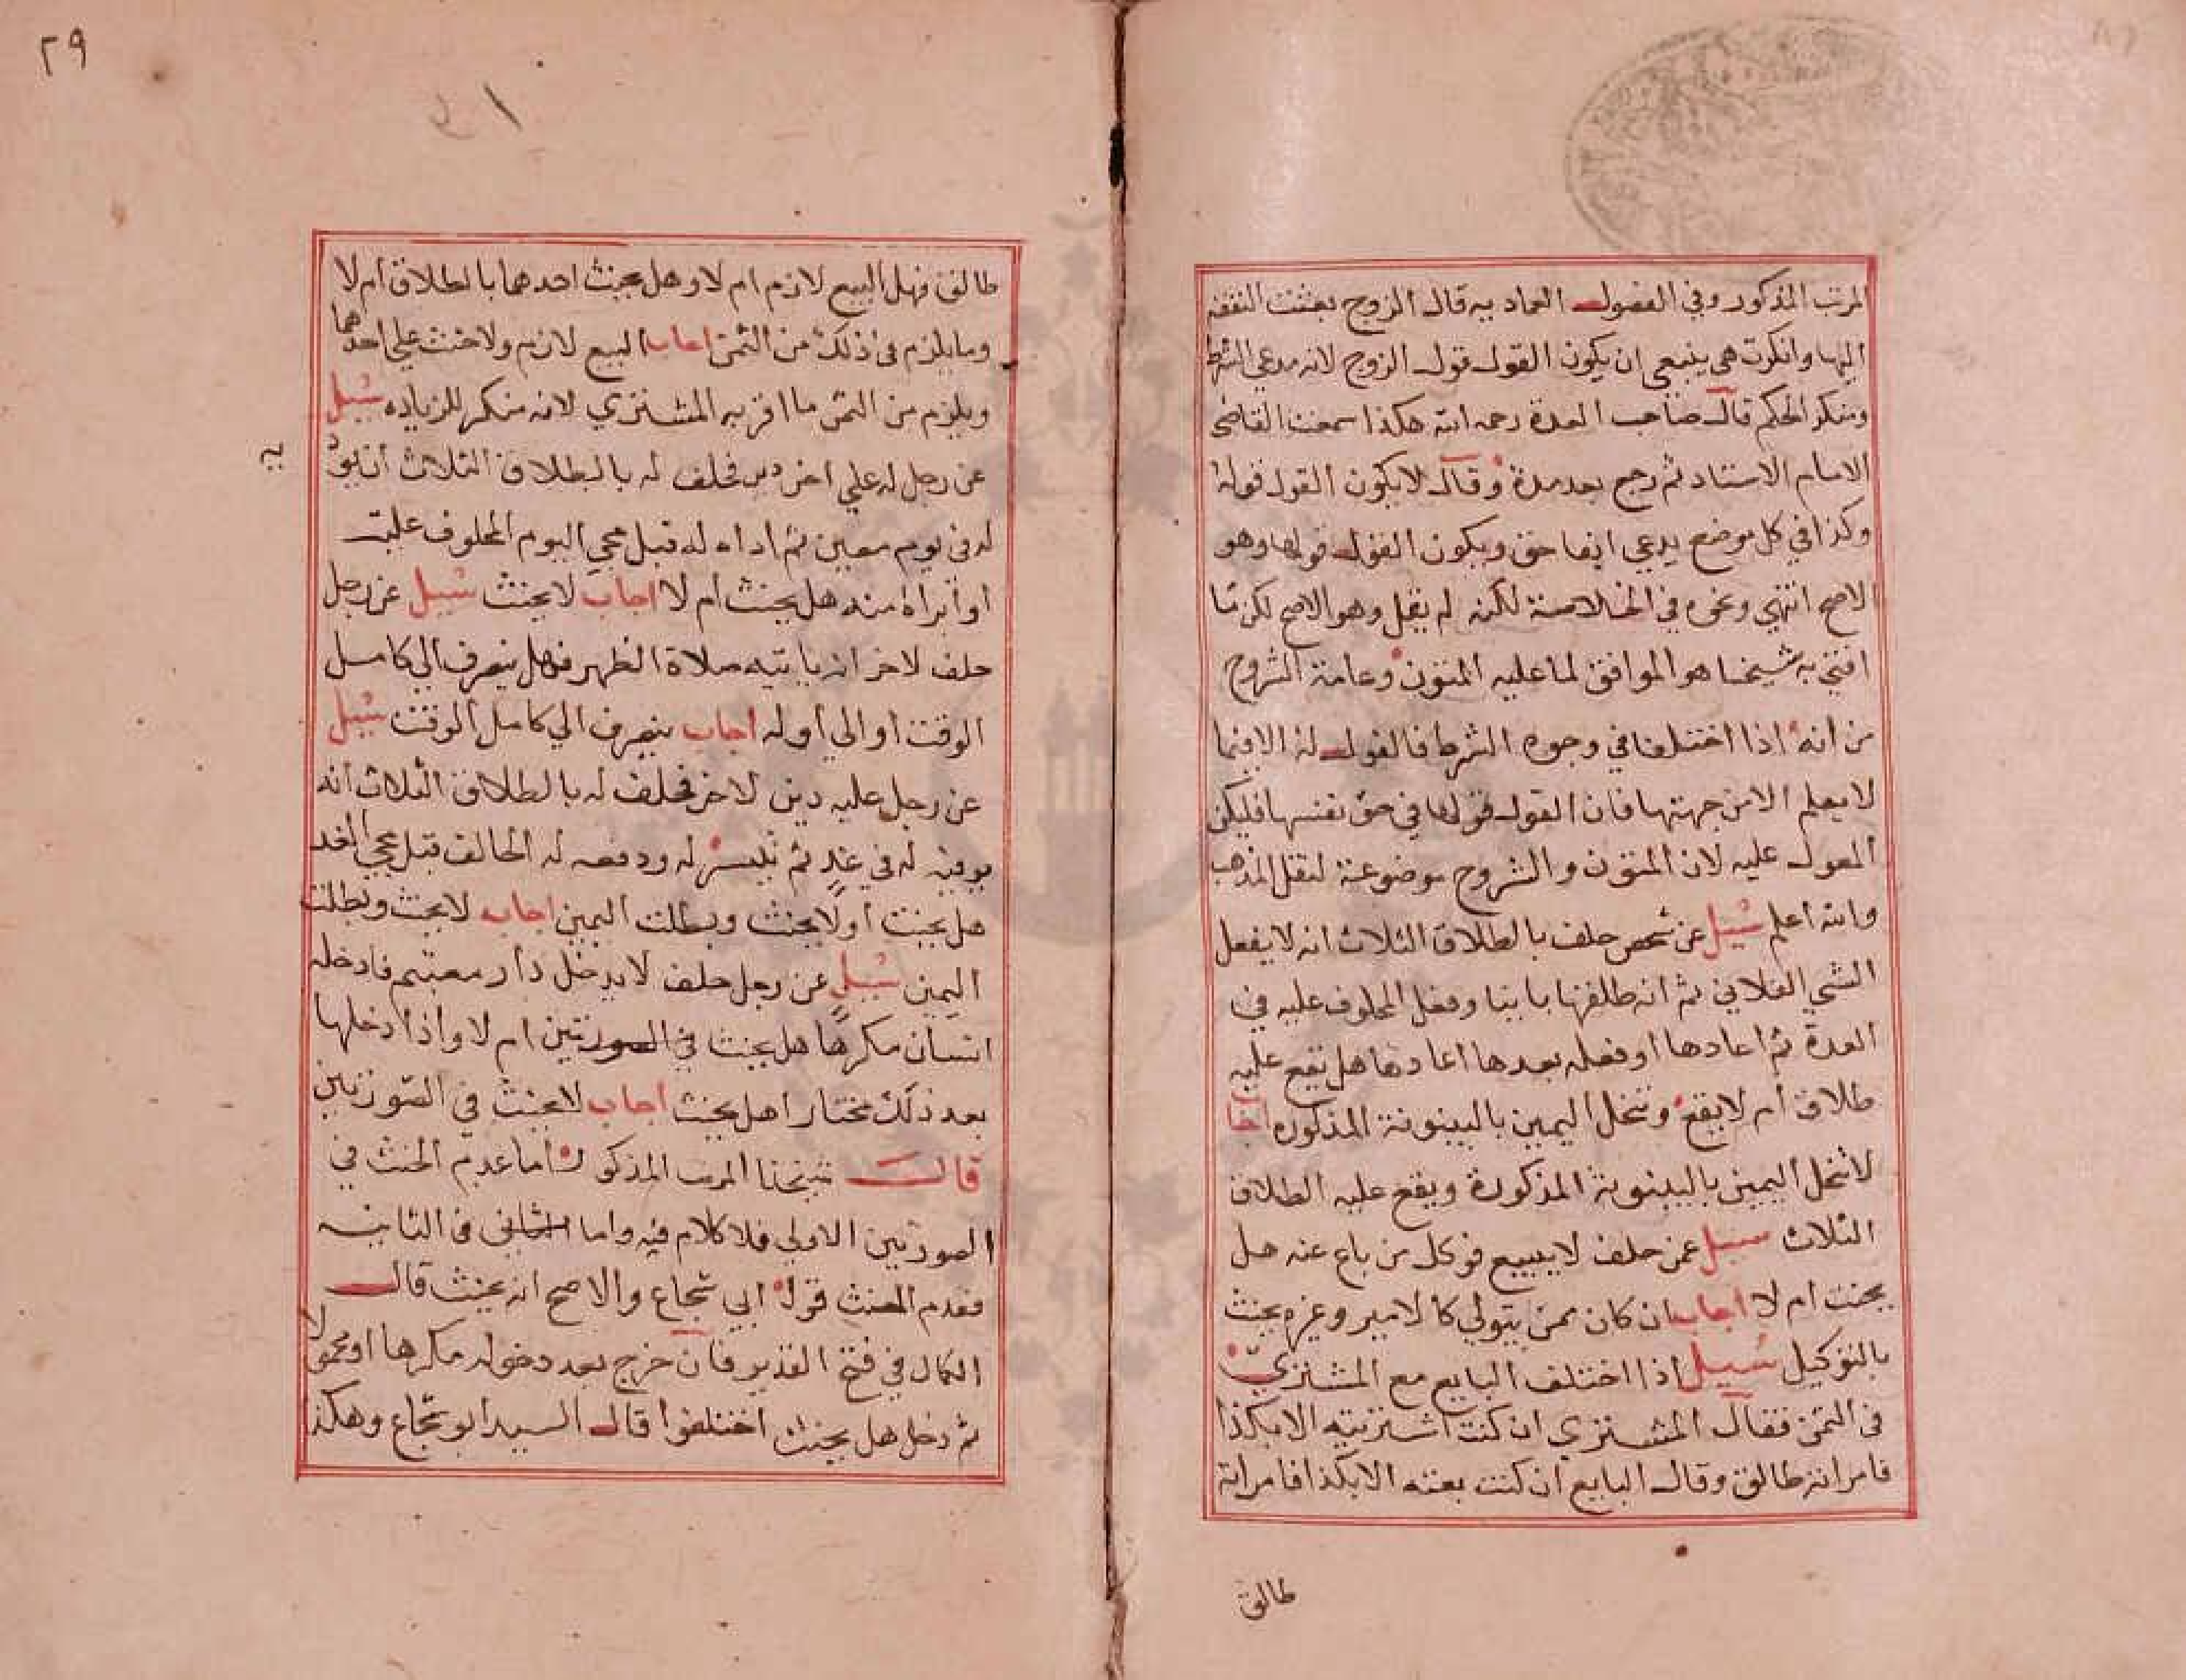 المرتب المذكور وفي الفصول العمادية قال الزوج بعثت النفقة
اليها وانكرت هي ينبغي ان يكون القول قول الزوج لانه مدعي الشرط
ومنكر الحكم قال صاحب العدة رحمه الله هكذا سمعت القاضي
الامام الاستاد ثم رجع بعد مدة وقال لا يكون القول قوله
وكذا في كل موضع يدعي ايفا حق ويكون القول قولها وهو
الاصح انتهي ونحوه في الخلاصة لكنه لم يقل وهو الاصح لكن ما
افتي به شيخنا هو الموافق لما عليه المتون وعامة الشروح
من أنه اذا اختلفا في وجود الشرط فالقول له الا فيما
لا يعلم الا من جهتها فان القول قولها في حق نفسها فليكن
المعول عليه لان المتون والشروح موضوعة لنقل المذهب
والله اعلم سئيل عن شخص حلف بالطلاق الثلاث انه لا يفعل
الشي الفلاني ثم انه طلقها باينا وفعل المحلوف عليه في
العدة ثم اعادها او فعله بعدها اعادها هل يقع عليه
طلاق أم لا يقع وتنحل اليمين بالبينونة المذكوره اجا
لا تنحل اليمين بالبينونة المذكورة ويقع عليه الطلاق
الثلاث سييل عمن حلف لا يبيع فوكل من باع عنه هل
يحنث ام لا اجاب ان كان ممن يتولي كالامير وغيره يحنث
بالتوكيل سييل اذا اختلف البايع مع المشتري
في الثمن فقال المشتري ان كنت اشتريته الا بكذا
فامراته طالق وقال البايع ان كنت بعته الا بكذا فامراته
طالق
٢٩
طالق فهل البيع لازم ام لا وهل يحنث احدهما بالطلاق أم لا
وما يلزم في ذلك من الثمن اجاب البيع لازم ولا حنث علي احدهما
ويلزم من الثمن ما اقر به المشتري لانه منكر للزياده سييل
عن رجل له علي اخر دين فحلف له بالطلاق الثلاث أن يود
يه
له في يوم معين ثم اداه له قبل مجي اليوم المحلوف عليه
او أبراه منه هل يحنث أم لا اجاب لا يحنث سييل عن رجل
حلف لاخر انه ياتيه صلاة الظهر فهل ينصرف الي كامل
الوقت أو الي أوله اجاب ينصرف الي كامل الوقت سييل
عن رجل عليه دين لاخر فحلف له بالطلاق الثلاث أنه
يوفيه له في غدٍ ثم تيسر له ودفعه له الحالف قبل مجي الغد
هل يحنث أو لا يحنث وبطلت اليمين اجاب لا يحنث وبطلت
اليمين سييل عن رجل حلف لا يدخل دار فادخله
انسان مكرها هل يحنث في الصورتين ام لا واذا دخلها
بعد ذلك مختارا هل يحنث اجاب لا يحنث في الصورتين
قال شيخنا المرتب المذكور اما عدم الحنث في
الصورتين الاولي فلا كلام فيه واما في الثانيه
فقدم المصنف قول ابي شجاع والاصح انه يحنث قال
الكمال في فتح القدير فان خرج بعد دخوله مكرها او محمولا
ثم دخل هل يحنث اختلفوا قال السيد ابو شجاع وهكذا